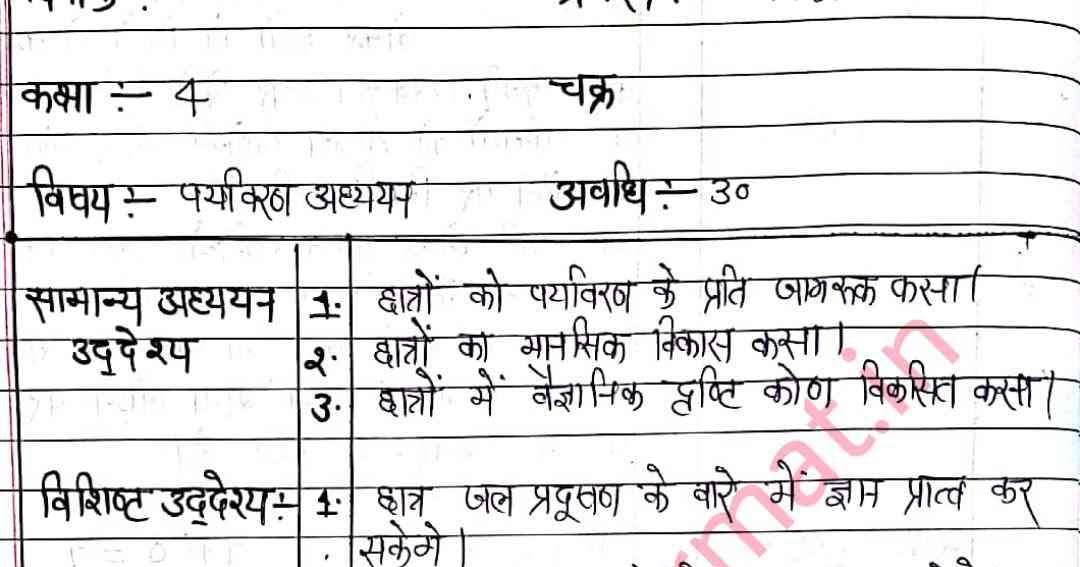 कक्षा :- 4 चक्र
विषय :- पर्यावरण अध्ययन अवधि :- 30
सामान्य अध्ययन 1. छात्रों को पर्यावरण के प्रति जागरूक करना।
उद्देश्य २. छात्रों का मानसिक विकास करना।
3. छात्रों में वैज्ञानिक दृष्टि कोण विकसित करना।
विशिष्ट उद्देश्य :- 1. छात्र जल प्रदूषण के बारे में ज्ञान प्राप्त कर
सकेगे।
rmat.in